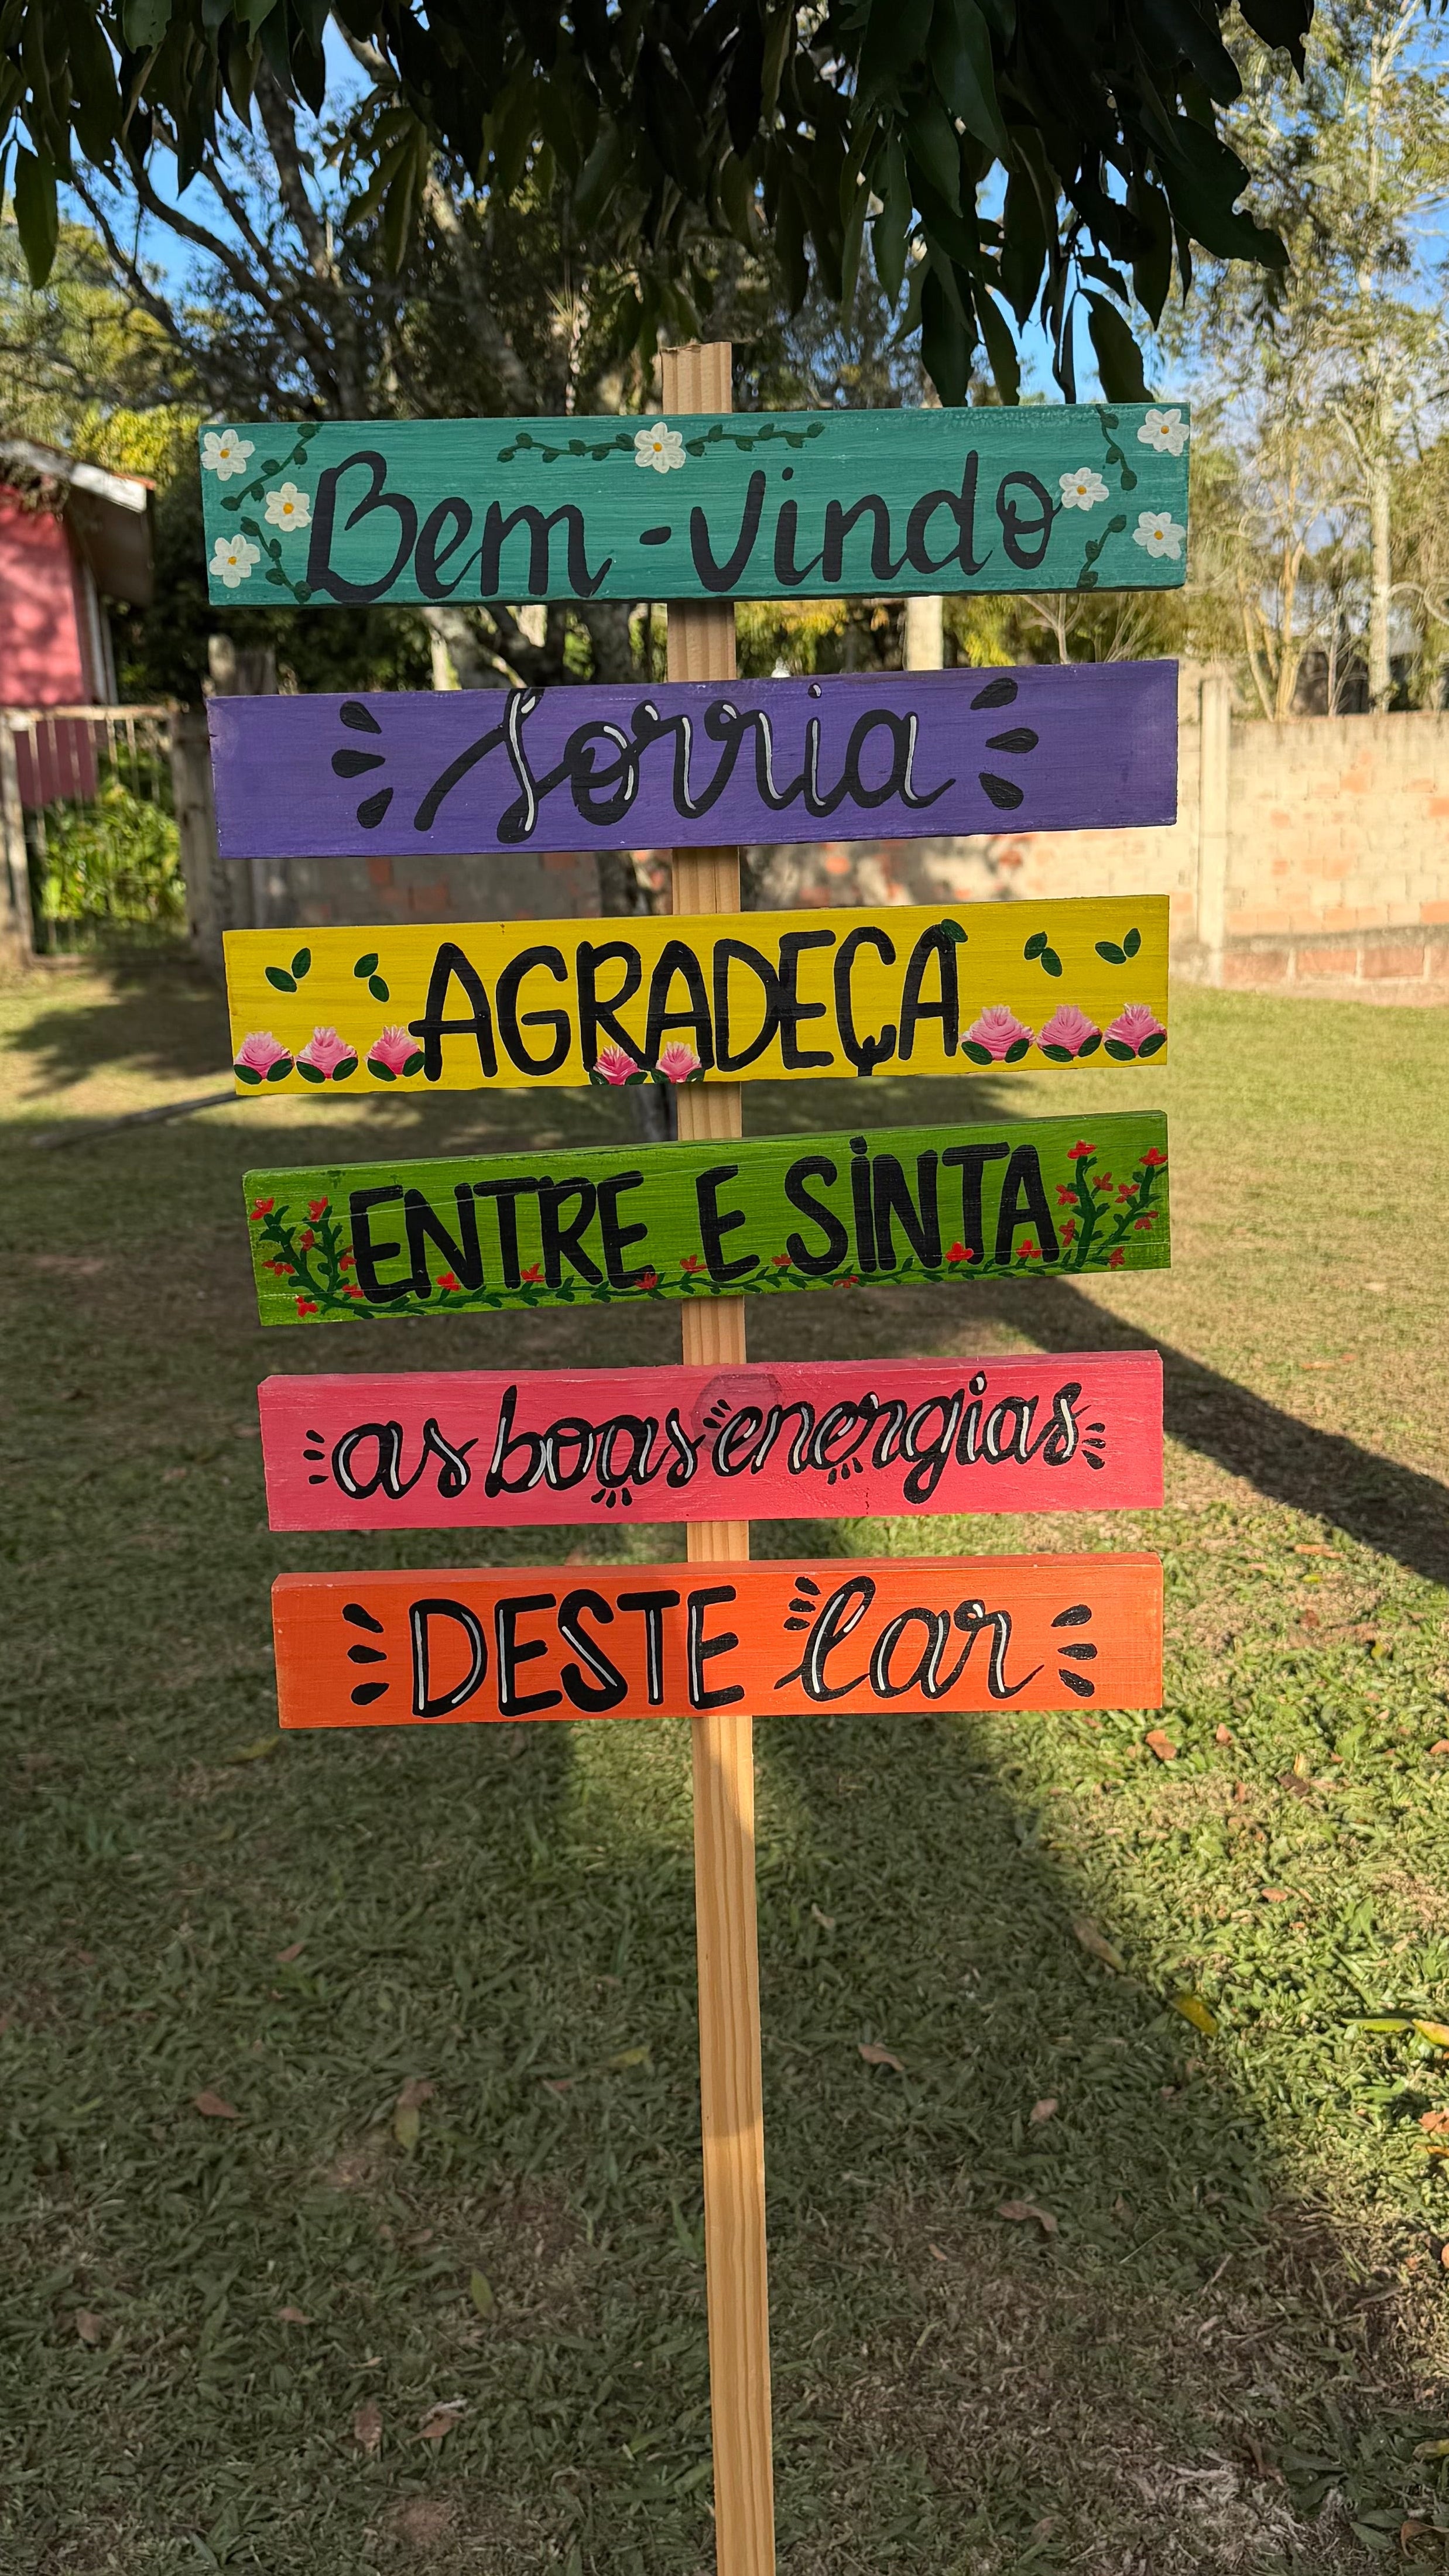 Bem-vindo
Sorria
AGRADEÇA
ENTRE E SINTA
as boas energias
DESTE lar